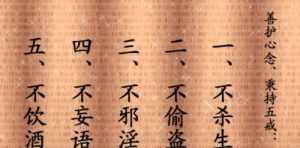 善护心念、秉持五戒：
一、不杀生
二、不偷盗
三、不邪淫
四、不妄语
五、不饮酒